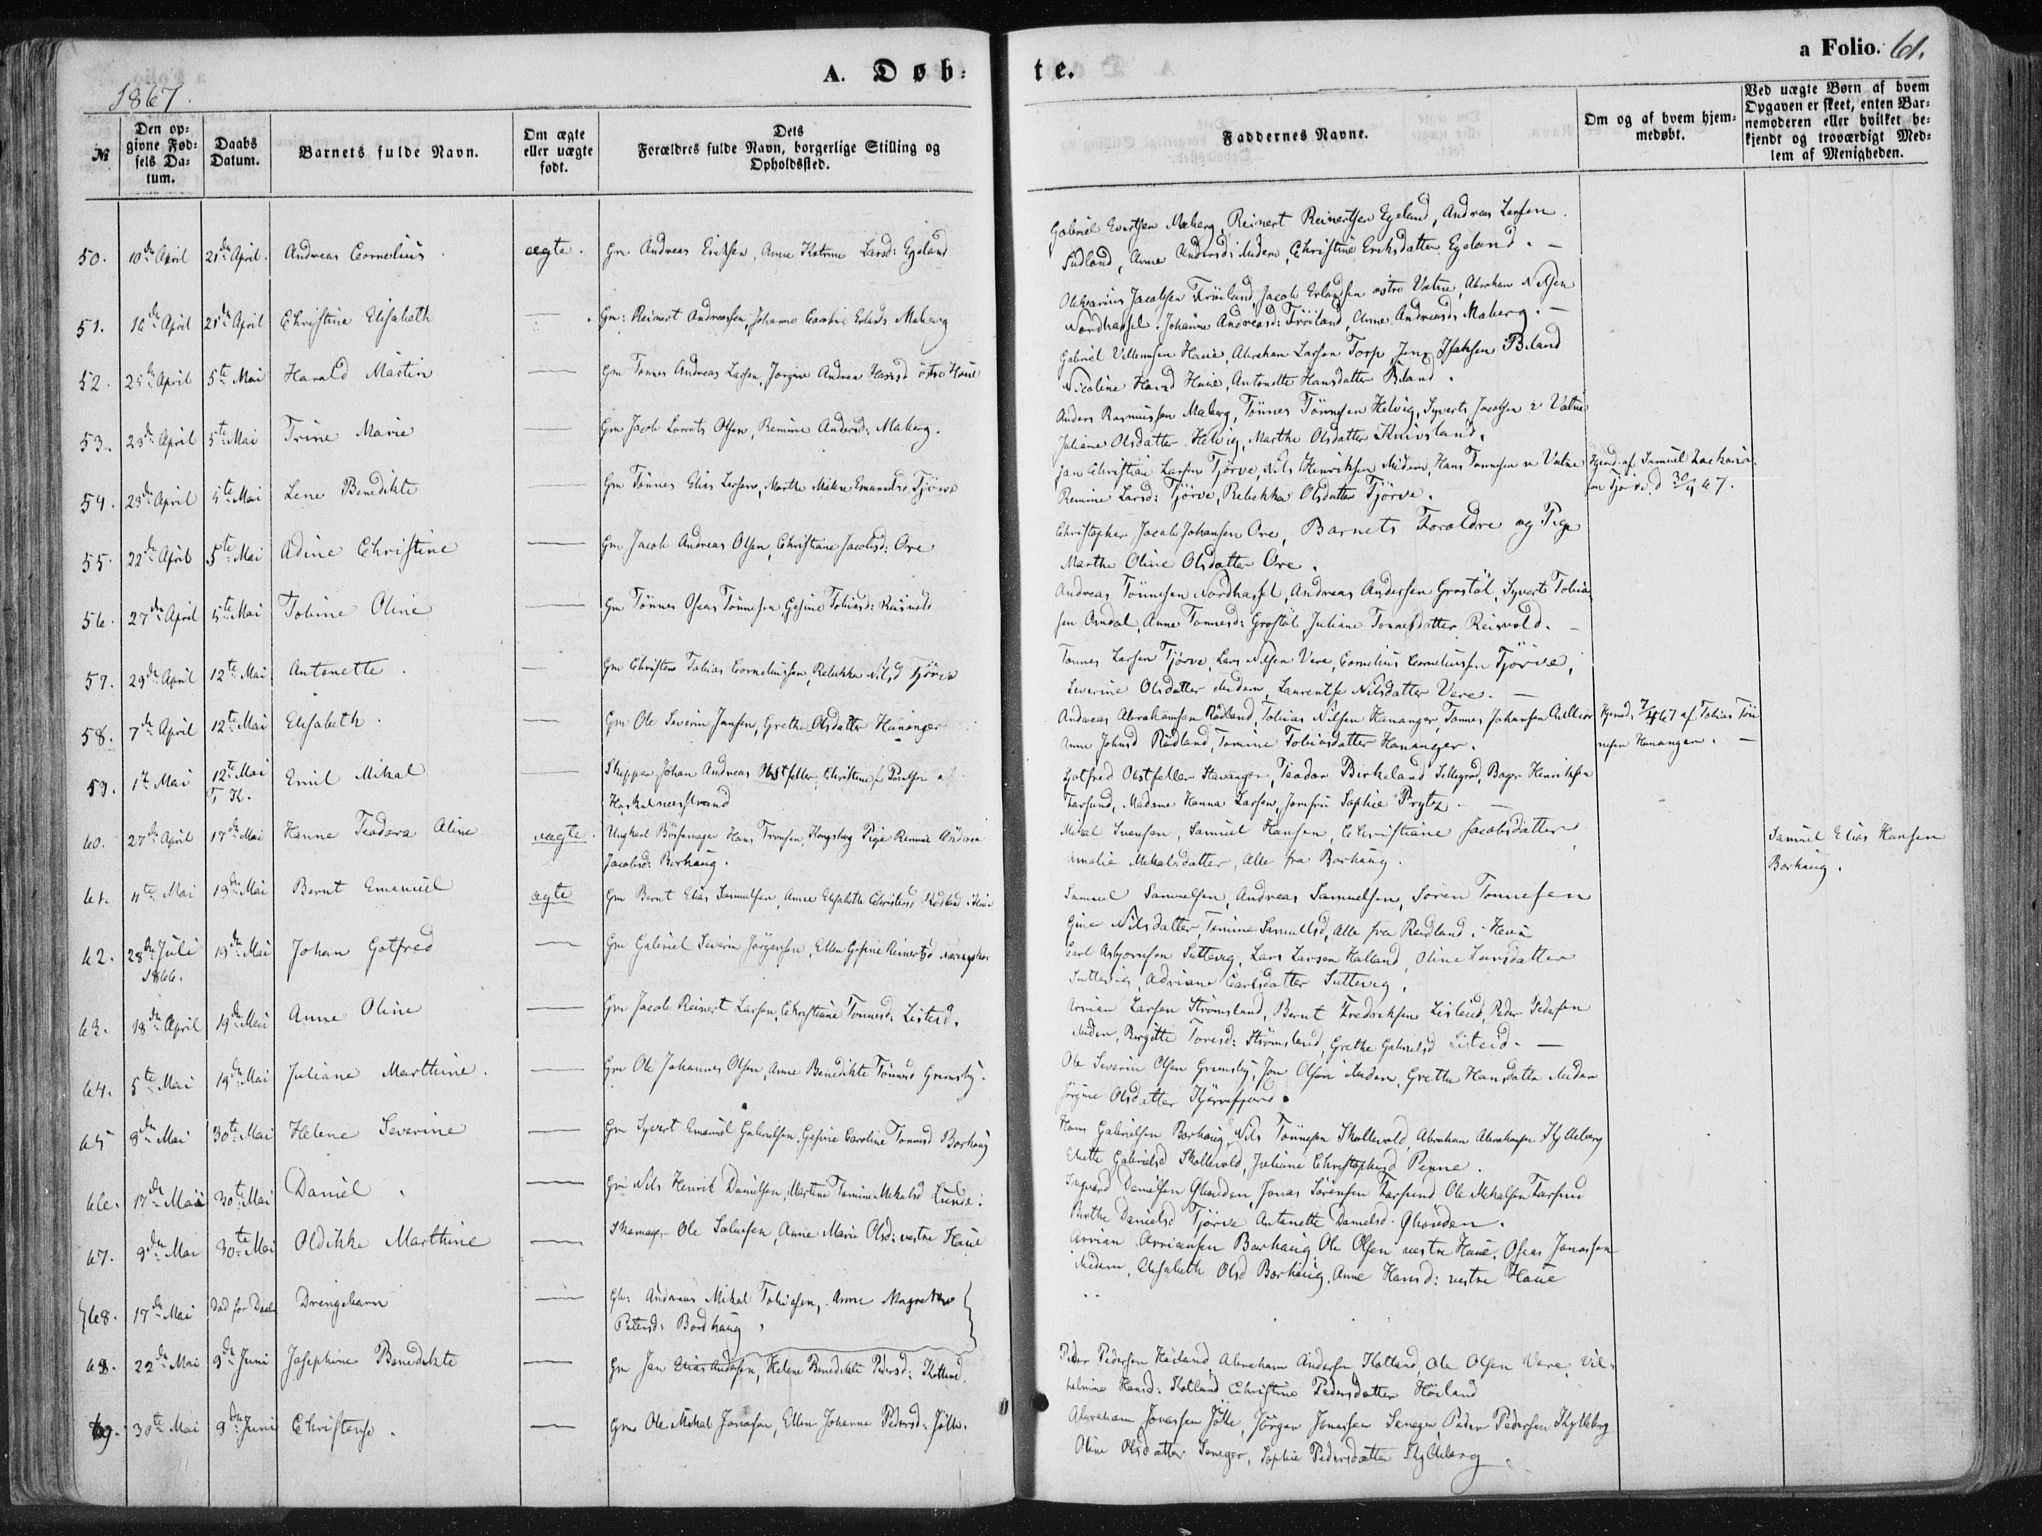 A. Døb-
te.
a Folio. 61.
1867.
№
Den op-
givne Fød-
sels Da-
tum.
Daabs
Datum.
Barnets fulde Navn.
Om ægte
eller uægte
født.
Dets
Forældres fulde Navn, borgerlige Stilling og
Opholdssted.
Faddernes Navne.
Om og af hvem hjem-
medøbt.
Ved uægte Børn af hvem
Opgaven er skeet, enten Bar-
nemoderen eller hvilket be-
kjendt og troværdigt Med-
lem af Menigheden.
50. 10de April 21de April. Andreas Cornelius. ægte. Gm. Andreas Eriksen, Anne Katrine Larsd: Egeland
Gabriel Evertsen Maberg, Reinert Reinertsen Egeland, Andreas Larsen
Sudland, Anne Andersd: ibidem, Christine Eriksdatter Egeland. —
51. 12de April 21de April Christine Elisabeth — Gm: Reinert Andreassen, Johanne Caroline Erlands Maberg
Olevarius Jacobsen Frøiland, Jacob Erlandsen østre Vatne, Abraham Nilsen
Nordhassel, Johanne Andreasd: Frøiland, Anne Andreasd: Maberg. —
52. 25de April 5te Mai Harald Martin — Gm Tønnes Andreas Larsen, Jorgine Andrea Hansd østre Haue
Gabriel Villumsen Haue, Abraham Larsen Torp, Jens Isaksen Biland
Nicoline Hansd Haue, Antonette Hansdatter Biland.
53. 23de April 5te Mai Trine Marie — Gm Jacob Lorents Olsen, Remine Andersd: Maberg.
Anders Rasmussen Maberg, Tønnes Tønnesen Helvig, Syvert Jacobsen v Vatne
Juliane Olsdatter Helvig, Marthe Olsdatter Knivsland.
54. 23de April 5te Mai Lene Benedikte — Gm Tønnes Elias Larsen, Marthe Malene Emanuelsd Tjørve
Jan Christian Larsen Tjørve, Nils Henriksen ibidem, Hans Tønnesen v Vatne
Remine Larsd: Tjørve, Rebekka Olsdatter Tjørve.
Hjemd. af Samuel Zacharia-
sen Tjørve, d 30/4 67.
55. 22de April 5te Mai Adine Christine — Gm Jacob Andreas Olsen, Christiane Jacobsd: Ore
Christopher Jacob Johansen Ore, Barnets Forældre og Pige
Marthe Oline Olsdatter Ore.
56. 27de April 5te Mai Tobine Oline — Gm Tønnes Oseas Tønnesen, Gesine Tobiasd: Reisvold
Andreas Tønnesen Nordhassel, Andreas Andersen Grostøl, Syvert Tobia-
sen Omdal, Anne Tønnesd: Grostøl, Juliane Tønnesdatter Reisvold. —
57. 29de April 12te Mai Antonette. — Gm Christen Tobias Corneliussen, Rebekka Nilsd Tjørve
Tønnes Larsen Tjørve, Lars Nilsen Vere, Cornelius Corneliussen Tjørve,
Severine Olsdatter ibidem, Laurentse Nilsdatter Vere. —
58. 7de April 12te Mai Elisabeth. — Gm Ole Severin Jansen, Grethe Olsdatter Hananger
Andreas Abrahamsen Rødland, Tobias Nilsen Hananger, Tønnes Johansen
Anne Johnsd Rødland, Tomine Tobiasdatter Hananger.
Hjemd: 7/4 67 af Tobias Tøn-
nesen Hananger. —
59. 1te Mai 12te Mai Emil Mikal — Skipper Johan Andreas Obstfelder, Christine f Poulsen af
F. K.
Haskelneestrand
Gotfred Obstfelder Stavanger, Teodor Birkeland, Bager Henriksen
Farsund, Madame Hanna Larsen, Jomfru Sophie Prytz. —
60. 27de April 17de Mai Hanne Teodora Aline uægte. Ungkarl Børsemager Hans Tronsen, Kongsberg Pige Remine Andrea
Jacobsd: Borhaug.
Mikal Svensen, Samuel Hansen, Christiane Jacobsdatter,
Amalie Mikalsdatter, Alle fra Borhaug.
Samuel Elias Hansen
Borhaug.
61. 4te Mai 19de Mai Bernt Emanuel ægte Gm Bernt Elias Samuelsen, Anne Elisabeth Christensd Rødland i Herred
Samuel Samuelsen, Andreas Samuelsen, Søren Tønnesen
Gine Nilsdatter, Tomine Samuelsd, Alle fra Rødland i Herad
62. 28de Juli 19de Mai Johan Gotfred — Gm Gabriel Severin Jørgensen, Ellen Gesine Reinertsd
1866.
Carl Asbjornsen Suttevig, Lars Larsen Halland, Oline Larsdatter
Suttevig, Adriane Carlsdatter Suttevig.
63. 18de April 19de Mai Anne Oline — Gm Jacob Reinert Larsen, Christiane Tønnesd: Listeid.
Arrian Larsen Strømsland, Bernt Fredriksen Listeid, Peder Pedersen
ibidem, Birgitte Toresd: Strømsland, Grethe Gabrielsd Listeid. —
64. 5te Mai 19de Mai Juliane Marthine. — Gm Ole Johannes Olsen, Anne Benedikte Tønnesd Grimsby.
Ole Severin Olsen Grimsby, Jon Olsen ibidem, Grethe Hansdatter ibidem
Jørgine Olsdatter Kjørrefjord.
65 8de Mai 30te Mai Helene Severine — Gm Syvert Emanuel Gabrielsen, Gesine Caroline Tønnesd Borhaug
Hans Gabrielsen Borhaug, Nils Tønnesen Skollevold, Abraham Abrahamsen Kylleberg
Elette Gabrielsd Skollevold, Juliane Christophersd Penne.
66. 17de Mai 30te Mai Daniel. — Gm Nils Henrik Danielsen, Martine Tomine Mikalsd Lunde:
Ingvard Danielsen Ghouden, Jonas Sørensen Farsund, Ole Mikalsen Farsund
Birthe Danielsd Tjørve, Antonette Danielsd Ghouden.
67. 9de Mai 30te Mai Oldikke Marthine — Skomager Ole Salvesen, Anne Marie Olsd: vestre Haue
Arrian Arriansen Borhaug, Ole Olsen vestre Haue, Oseas Jonassen
ibidem, Elisabeth Olsd Borhaug, Anne Hansd: vestre Haue
68. 17de Mai Død før Daab Drengebarn — Gm: Andreas Mikal Tobiasen, Anne Magrethe
Petersd: Bordhaug.
68. 22de Mai 9de Juni Josephine Benedikte — Gm Jan Elias Andersen, Helene Benedikte Pedersd: Hotland.
Peder Pedersen Høiland, Abraham Andersen Hotland, Ole Olsen Vere, Vil-
helmine Hansd: Hotland, Christine Pedersdatter Høiland
69. 30te Mai 9de Juni Christense. — Gm Ole Mikal Jonassen, Ellen Johanne Pedersd: Jølle.
Abraham Jonassen Jølle, Jørgen Jonassen Seneger, Peder Pedersen Kylleberg
Oline Olsdatter Seneger, Sophie Pedersdatter Kylleberg.